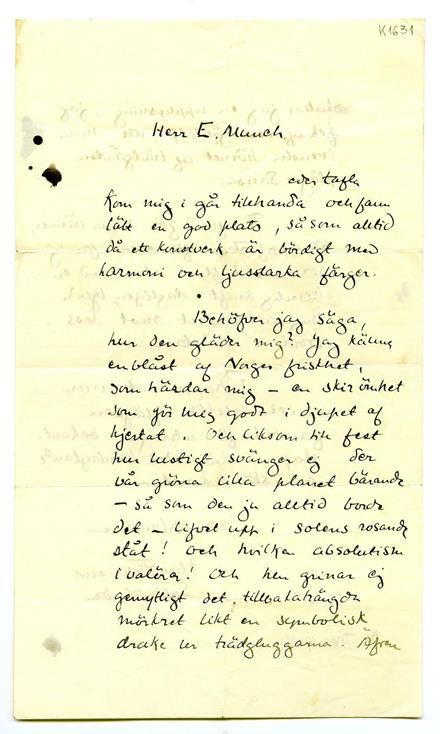 K1631
Herr E. Munch.
eder tafla
Kom mig i går tillhanda och fann
lätt en god plats, så som alltid
då ett konstverk är bördigt med
harmoni och ljusstarka färger.
Behöfver jag säga,
hur den gläder mig? Jag känner
en blåst af Norges friskhet,
som härdar mig – en skir ömhet
som gör mig godt i djupet af
hjertat. Och liksom till fest
hur lustigt svänger ej der
vår gröna lilla planet bärande
– så som den ju alltid borde
det – lifvet upp i solens rosande
ståt! Och hvilken absolutism
i valörer! Och hur grinar ej
gemytligt det tillbakaträngda
mörkret likt en symbolisk
drake ur trädgluggarna. Äfven